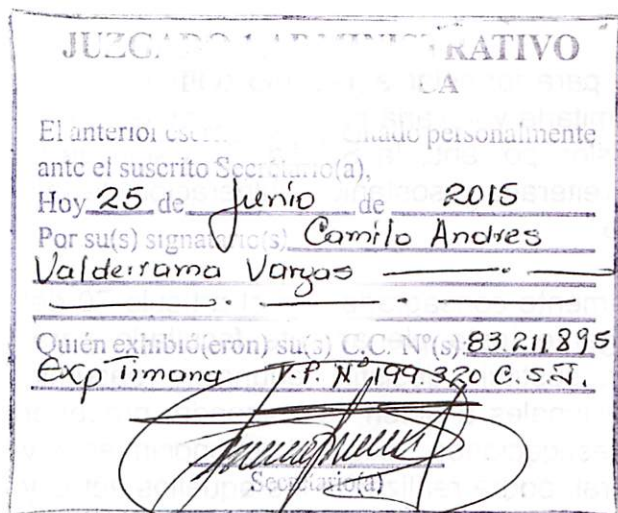 JUZGADO ADMINISTRATIVO
El anterior presentado personalmente
ante el suscrito Secretario(a),
Hoy 25 de Junio de 2015
Por su(s) signatario(s) Camilo Andres
Valderrama Vargas
Quién exhibió(eron) su(s) C.C. Nº(s). 83.211.895
Exp Timana T.P. Nº 199.320 C.S.J.
Secretario(a)